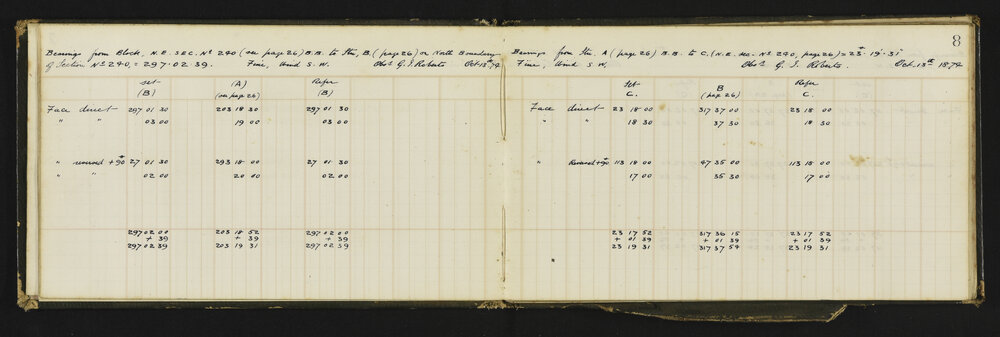 Bearings from Block, N.E. SEC. Nº 240 (see page 26) B.B. to Stn, B. (page 26) on North Boundary
of Section Nº 240, = 297·02·39. Fine, Wind S.W. Obsr G.J. Roberts. Oct. 13th 74
set (A) Refer
(B) (see page 26) (B)
Face direct 297 01 30 203 18 30 297 01 30
" " 03 00 19 00 03 00
" reversed +90 27 01 30 293 18 00 27 01 30
" " 02 00 20 00 02 00
297 02 00 203 18 52 297 02 00
+ 39 + 39 + 39
297 02 39 203 19 31 297 02 39
8
Bearings from Stn A (page 26) B.B. to C. (N.E. Sec. Nº 240, page 26) = 23·19·31
Fine, Wind S.W. Obsr G.J. Roberts. Oct. 13th 1874
Set B Refer
C. (page 26) C.
Face direct 23 18 00 317 37 00 23 18 00
" " 18 30 37 30 18 30
" Reversed +90 113 18 00 47 35 00 113 18 00
17 00 35 30 17 00
23 17 52 317 36 15 23 17 52
+ 01 39 + 01 39 + 01 39
23 19 31 317 37 54 23 19 31